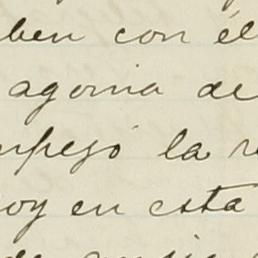 ben con él
agonia de
mpezó la
oy en esta